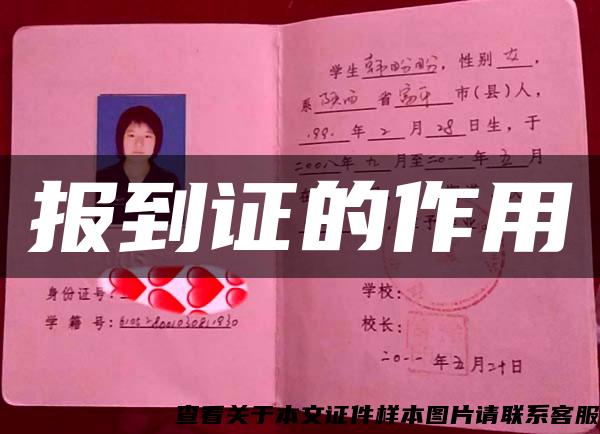 学生韩盼盼，性别女，
系陕西省富平市(县)人，
1991年2月28日生，于
二00八年九月至二0一一年五月
在
报到证的作用
身份证号：
学籍号：
学校：
校长：
二0一一年五月二十日
查看关于本文证件样本图片请联系客服